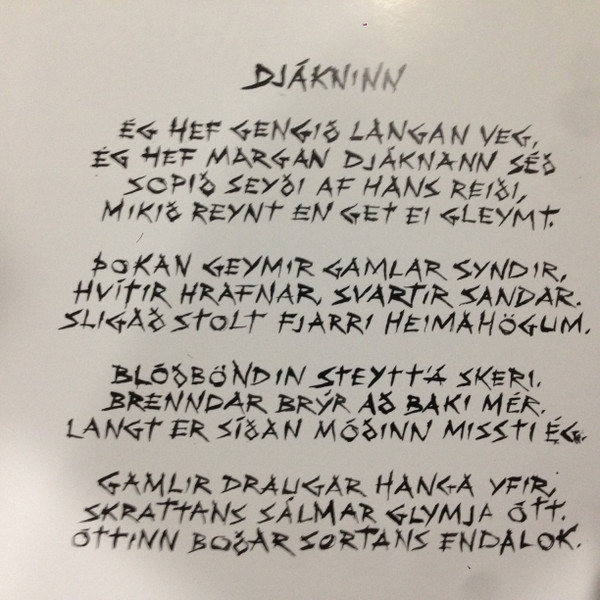 DJÁKNINN
ÉG HEF GENGIÐ LANGAN VEG,
ÉG HEF MARGAN DJÁKNANN SÉÐ
SOPIÐ SEYÐI AF HANS REIÐI,
MIKIÐ REYNT EN GET EI GLEYMT.
ÞOKAN GEYMIR GAMLAR SYNDIR,
HVÍTIR HRAFNAR, SVARTIR SANDAR.
SLIGAÐ STOLT FJARRI HEIMAHÖGUM.
BLÓÐBÖNDIN STEYTT'Á SKERI.
BRENNDAR BRÝR AÐ BAKI MÉR.
LANGT ER SÍÐAN MÓÐINN MISSTI ÉG.
GAMLIR DRAUGAR HANGA YFIR,
SKRATTANS SÁLMAR GLYMJA ÓTT.
ÓTTINN BOÐAR SORTANS ENDALOK.